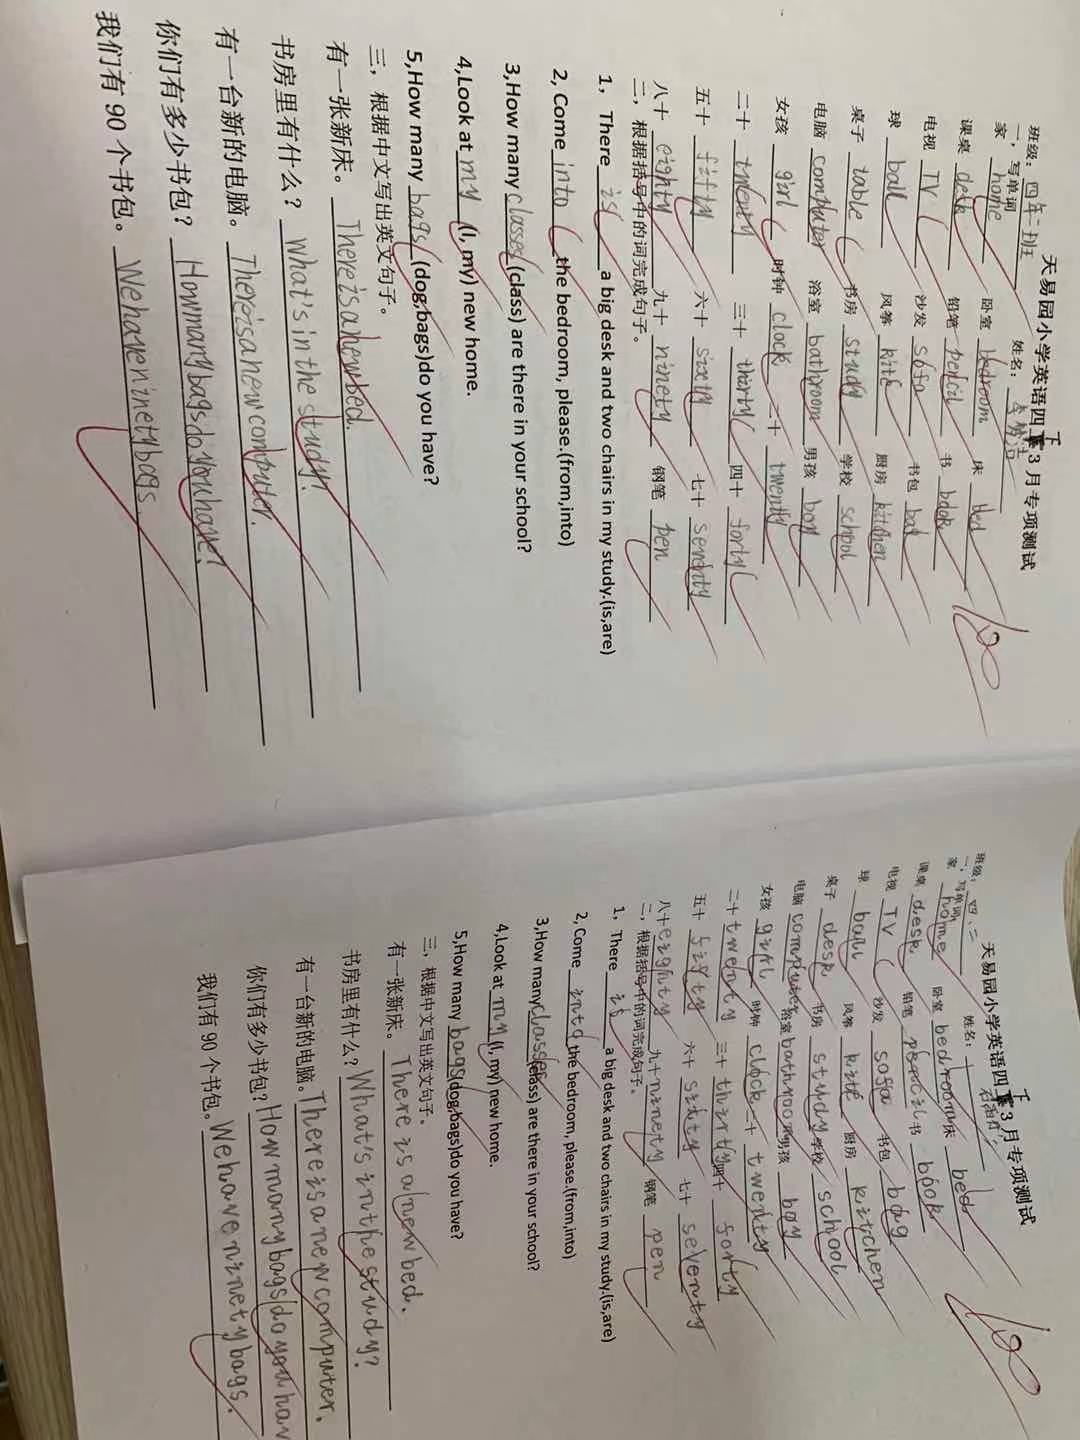 天易园小学英语四下3月专项测试
班级：四年二班 姓名：
一，写单词
家 home 卧室 bedroom 床 bed
课桌 desk 铅笔 pencil 书 book
电视 TV 沙发 sofa 书包 bag
球 ball 风筝 kite 厨房 kitchen
桌子 table 书房 study 学校 school
电脑 computer 浴室 bathroom 男孩 boy
女孩 girl 时钟 clock 二十 twenty
二十 twenty 三十 thirty 四十 forty
五十 fifty 六十 sixty 七十 seventy
八十 eighty 九十 ninety 钢笔 pen
二，根据括号中的词完成句子。
1，There is a big desk and two chairs in my study.(is,are)
2, Come into the bedroom, please.(from,into)
3,How many classes (class) are there in your school?
4,Look at my (I, my) new home.
5,How many bags (dog,bags)do you have?
三，根据中文写出英文句子。
有一张新床。 There is a new bed.
书房里有什么？ What's in the study?
有一台新的电脑。 There is a new computer.
你们有多少书包？ How many bags do you have?
我们有 90 个书包。 We have ninety bags.
100
天易园小学英语四下3月专项测试
班级：四、二 姓名：
一，写单词
家 home 卧室 bedroom 床 bed
课桌 desk 铅笔 pencil 书 book
电视 TV 沙发 sofa 书包 bag
球 ball 风筝 kite 厨房 kitchen
桌子 desk 书房 study 学校 school
电脑 computer 浴室 bathroom 男孩 boy
女孩 girl 时钟 clock 二十 twenty
二十 twenty 三十 thirty 四十 forty
五十 fifty 六十 sixty 七十 seventy
八十 eighty 九十 ninety 钢笔 pen
二，根据括号中的词完成句子。
1，There is a big desk and two chairs in my study.(is,are)
2, Come into the bedroom, please.(from,into)
3,How many classes (class) are there in your school?
4,Look at my (I, my) new home.
5,How many bags (dog,bags)do you have?
三，根据中文写出英文句子。
有一张新床。 There is a new bed.
书房里有什么？ What's in the study?
有一台新的电脑。 There is a new computer.
你们有多少书包？ How many bags do you hav
我们有 90 个书包。 We have ninety bags.
100